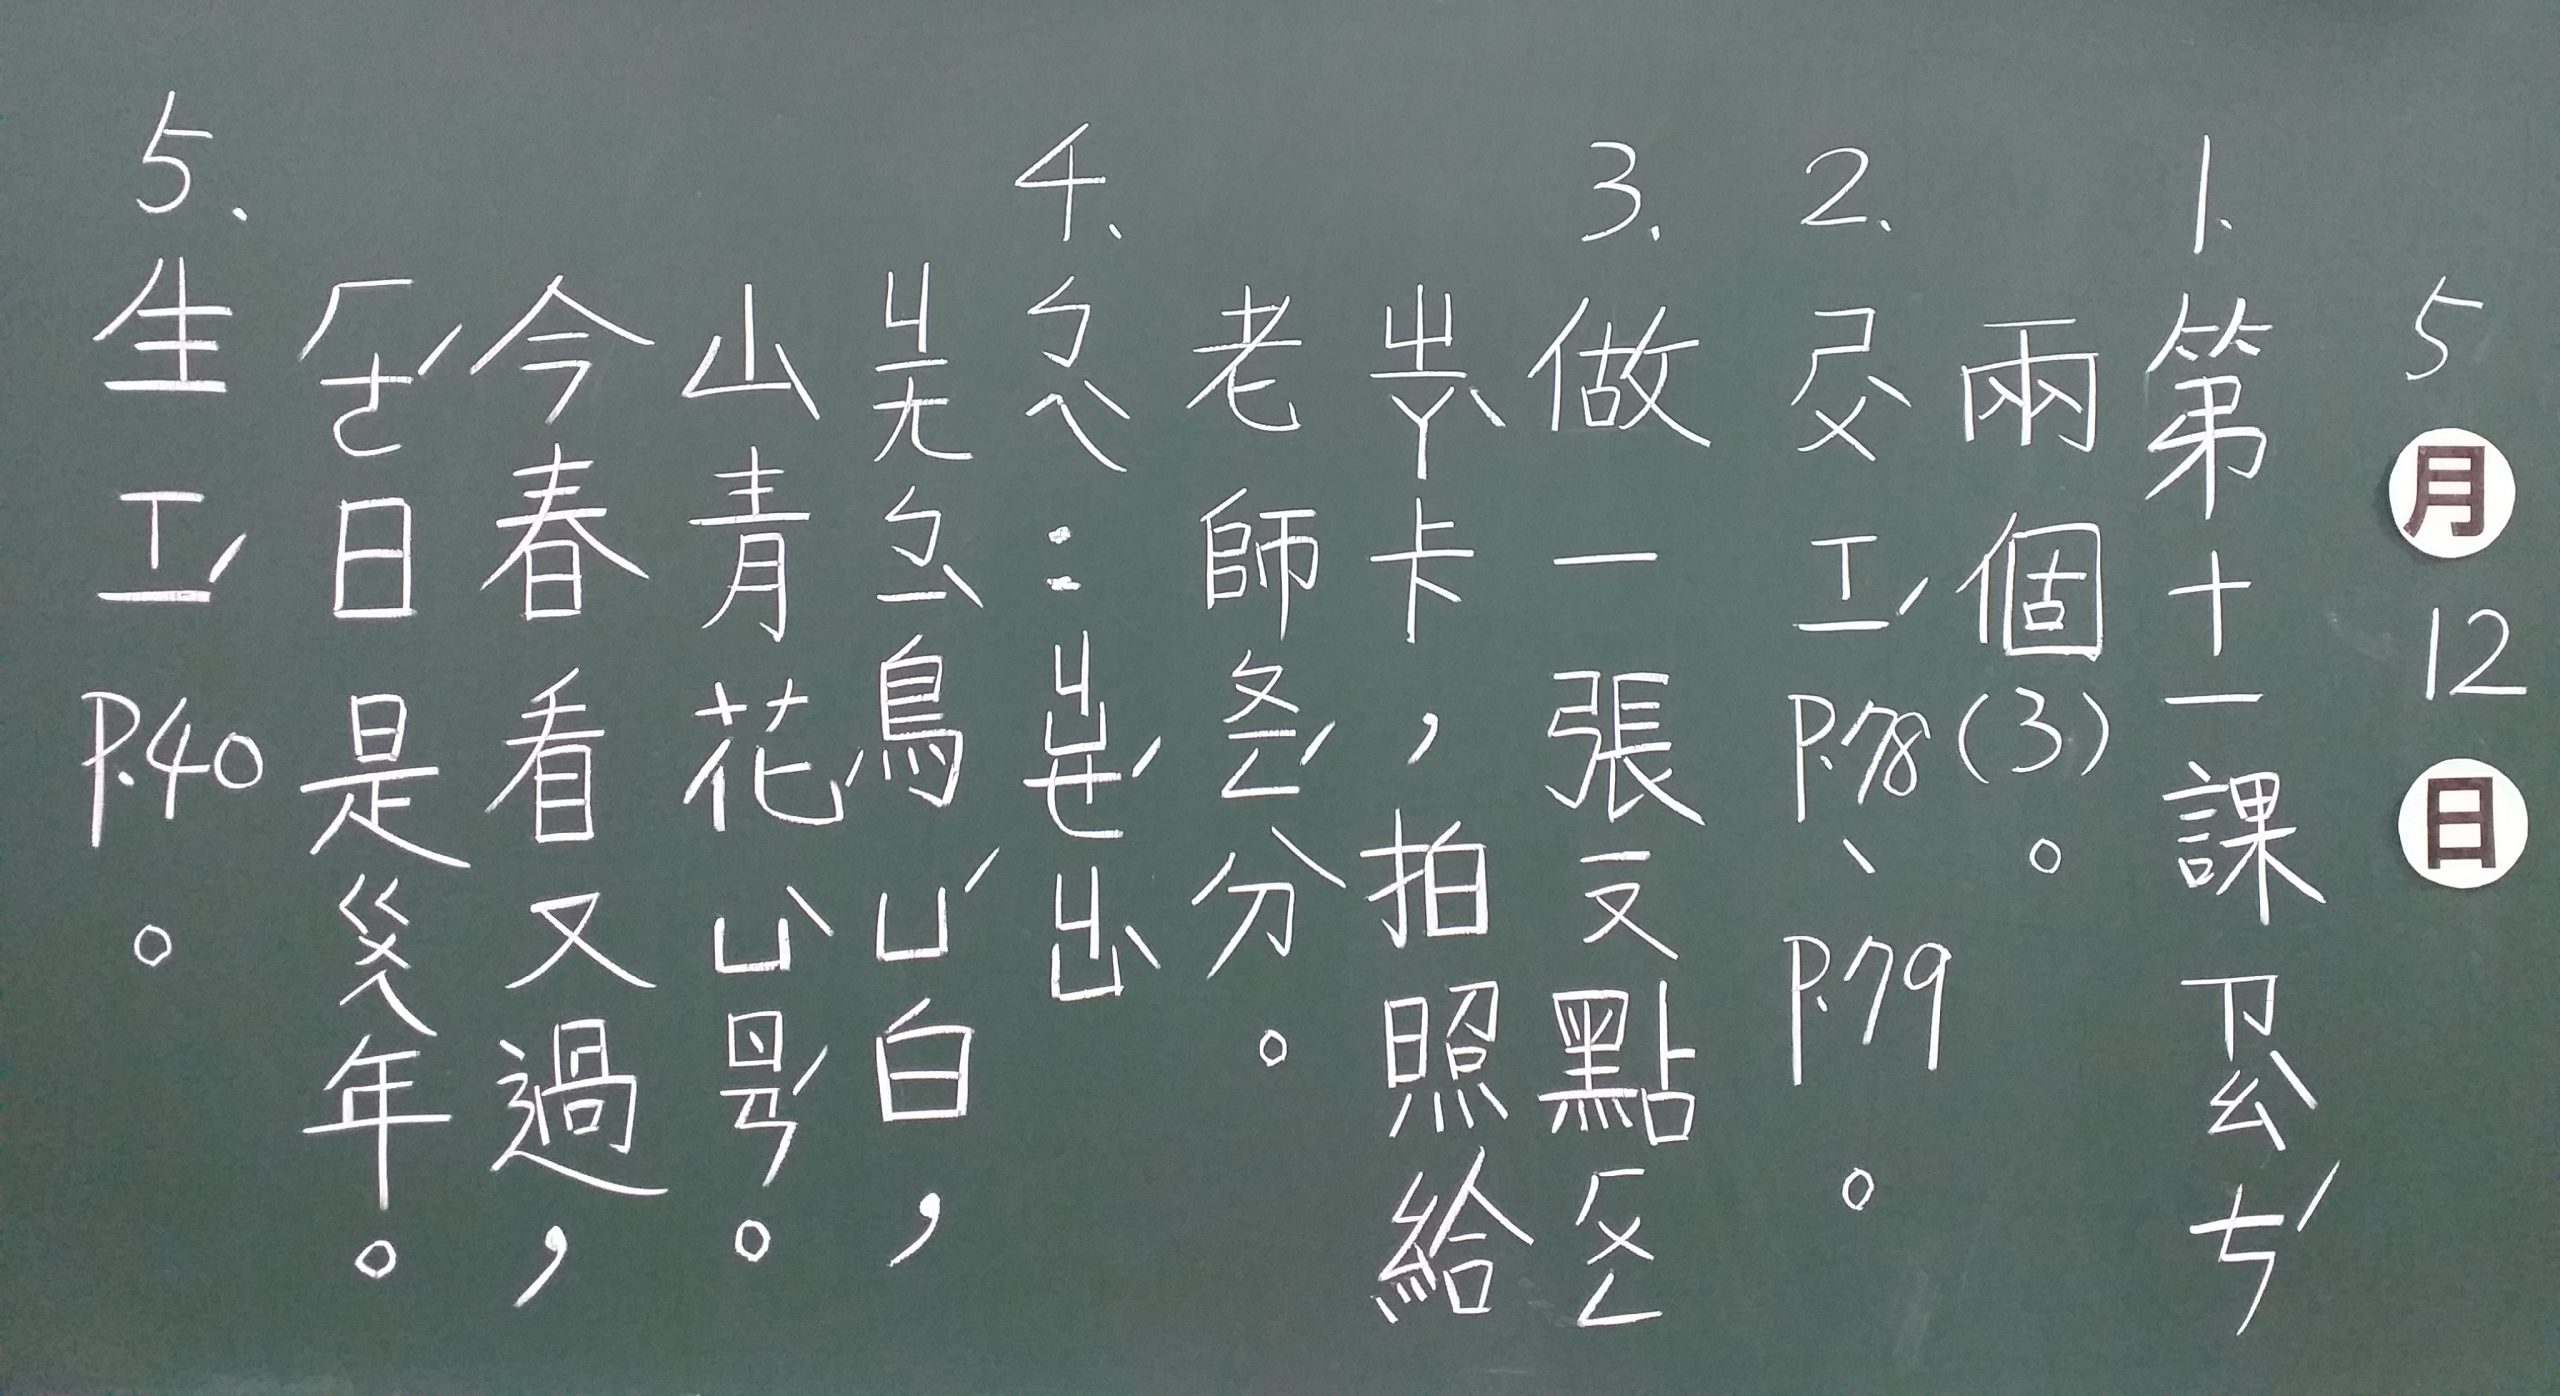 5月12日
1.第十一課ㄗㄠˋㄘˊ
兩個(3)。
2.ㄕㄨˋㄒㄧˊP.78、P.79。
3.做一張ㄧㄡ點ㄏㄨㄥ
ㄓㄚˋ卡，拍照給
老師ㄆㄧㄥˊ分。
4.ㄅㄟˋ：ㄐㄩㄝˊㄐㄩˋ
ㄐㄧㄤㄅㄧˋ鳥ㄩˊ白，
山青花ㄩˋㄖㄢˊ。
今春看又過，
ㄏㄜˊ日是ㄍㄨㄟ年。
5.生ㄒㄧˊP.40。